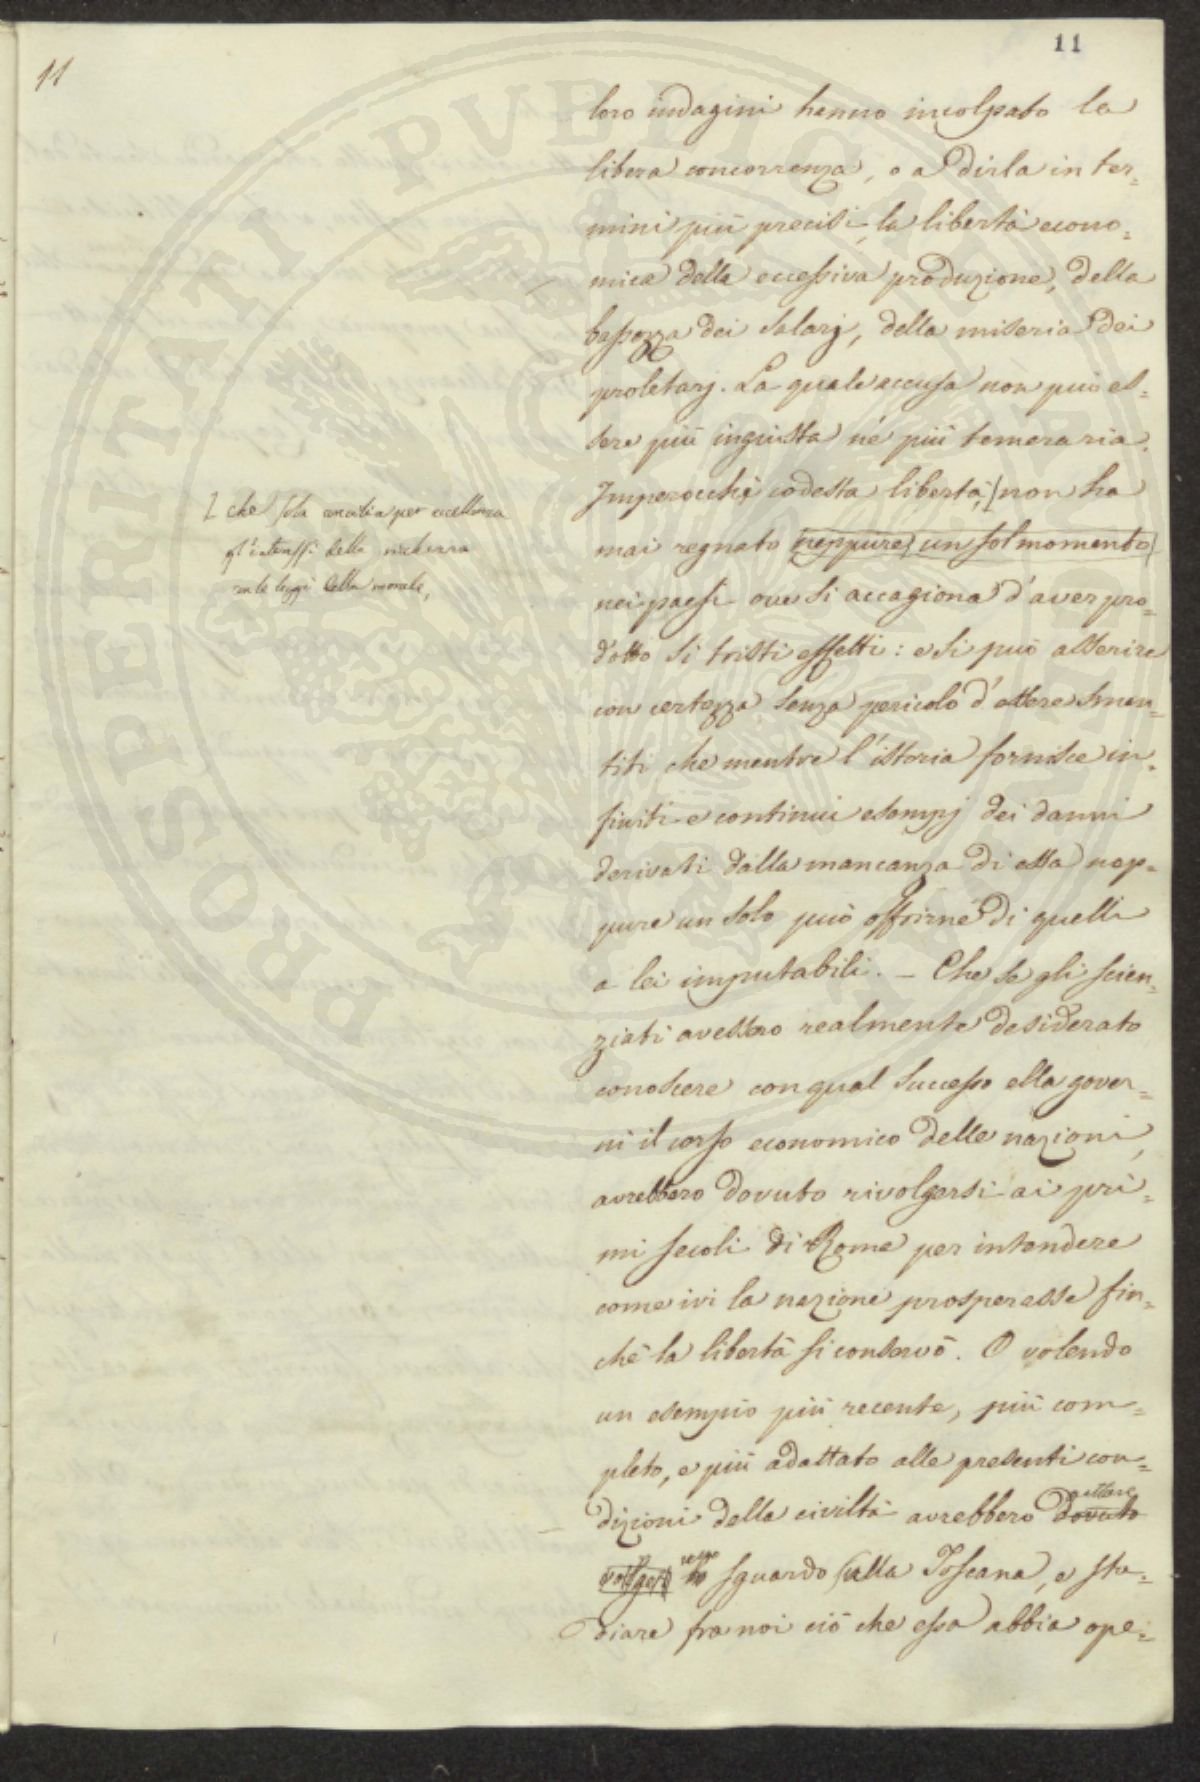 11
11
loro indagini hanno incolpato la
libera concorrenza, o a dirla in ter=
mini più precisi, la libertà econo=
mica della eccessiva produzione, della
bassezza dei salarj, della miseria dei
proletarj. La quale accusa non può es=
sere più ingiusta né più temeraria.
Imperocché codesta libertà, non ha
mai regnato neppure un sol momento
nei paesi ove si accagiona d'aver pro=
dotto sì tristi effetti: e si può asserire
con certezza senza pericolo d'essere smen=
titi che mentre l'istoria fornisce in=
finiti e continui esempj dei danni
derivati dalla mancanza di essa nep=
pure un solo può offrirne di quelli
a lei imputabili. – Che se gli scien=
ziati avessero realmente desiderato
conoscere con qual successo ella gover=
ni il corso economico delle nazioni,
avrebbero dovuto rivolgersi ai pri=
mi secoli di Roma per intendere
come ivi la nazione prosperasse fin=
ché la libertà si conservò. O volendo
un esempio più recente, più com=
pleto, e più adattato alle presenti con=
dizioni della civiltà avrebbero dovuto
gettare
lo sguardo alla Toscana, e stu=
diare fra noi ciò che essa abbia ope=
che sola concilia per eccellenza
gl'interessi della ricchezza
con le leggi della morale,
PROSPERITATI PVBLICAE